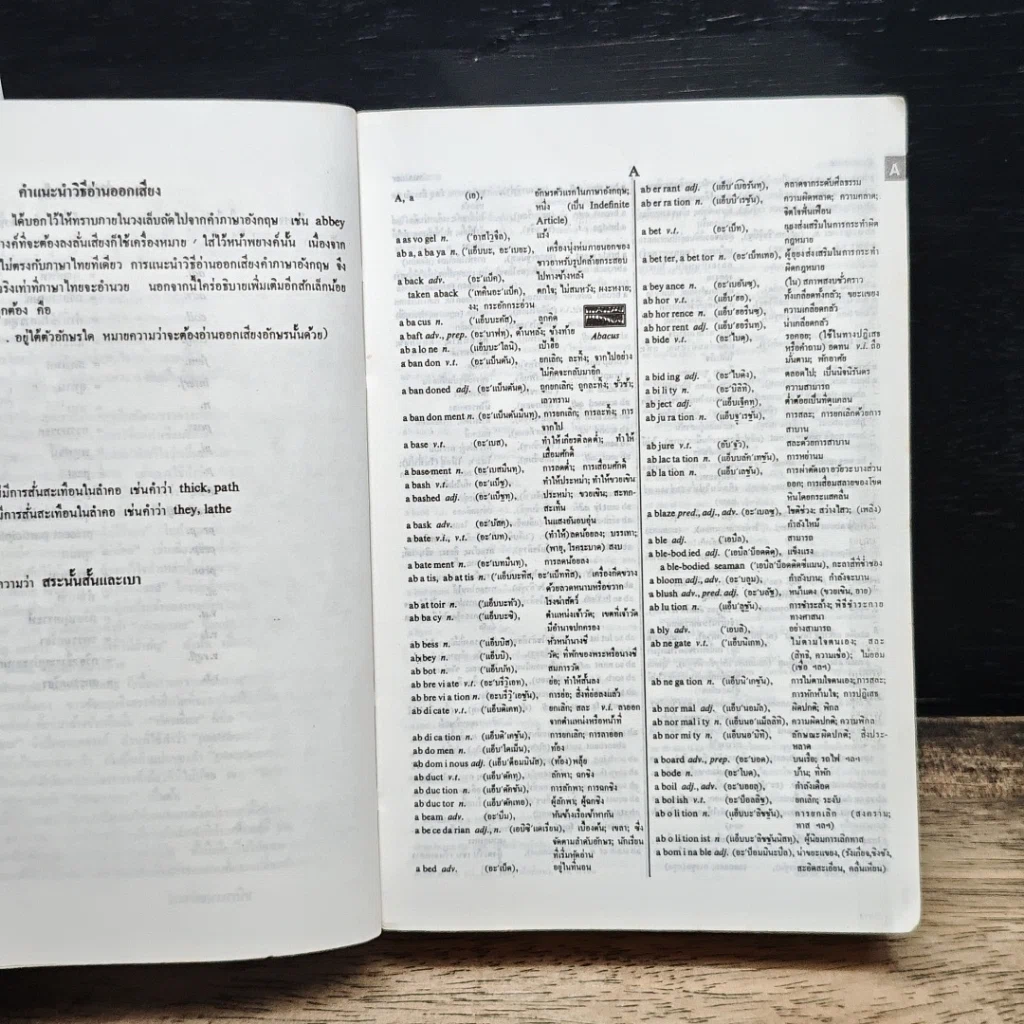 คำแนะนำวิธีอ่านออกเสียง
ได้บอกไว้ให้ทราบภายในวงเล็บถัดไปจากคำภาษาอังกฤษ เช่น abbey
างค์ที่จะต้องลงลั่นเสียงก็ใช้เครื่องหมาย ' ใส่ไว้หน้าพยางค์นั้น เนื่องจาก
ไม่ตรงกับภาษาไทยทีเดียว การแนะนำวิธีอ่านออกเสียงคำภาษาอังกฤษ จึง
จริงเท่าที่ภาษาไทยจะอำนวย นอกจากนี้ใคร่อธิบายเพิ่มเติมอีกสักเล็กน้อย
กต้อง คือ
. อยู่ใต้ตัวอักษรใด หมายความว่าจะต้องอ่านออกเสียงอักษรนั้นด้วย)
มีการสั่นสะเทือนในลำคอ เช่นคำว่า thick, path
มีการสั่นสะเทือนในลำคอ เช่นคำว่า they, lathe
ความว่า สระนั้นสั้นและเบา
A
A
A, a (เอ), อักษรตัวแรกในภาษาอังกฤษ;
หนึ่ง (เป็น Indefinite
Article)
a as vo gel n. แร้ง
a ba, a ba ya n. เครื่องนุ่งห่มภายนอกของ
ชาวอาหรับรูปคล้ายกระสอบ
a back adv. (อะ'แบ็ค), ไปทางข้างหลัง
taken aback ตกใจ; ไม่สมหวัง; ผงะหงาย;
งง; กระอักกระอ่วน
a ba cus n. ('แอ็บบะคัส), ลูกคิด
Abacus
a baft adv., prep. (อะ'บาฟท), ด้านหลัง; ข้างท้าย
ab a lo ne n. เป๋าฮื้อ
a ban don v.t. (อะ'แบ็นดัน), ยกเลิก; ละทิ้ง; จากไปอย่าง
ไม่คิดจะกลับมาอีก
a ban doned adj. (อะ'แบ็นดันด), ถูกยกเลิก; ถูกละทิ้ง; ชั่วช้า;
เลวทราม
a ban don ment n. (อะ'แบ็นดันมึนท), การยกเลิก; การละทิ้ง; การ
จากไป
a base v.t. (อะ'เบส), ทำให้เกียรติลดต่ำ; ทำให้
เสื่อมศักดิ์
a base ment n. (อะ'เบสมึนท), การลดต่ำ; การเสื่อมศักดิ์
a bash v.t. (อะ'แบ็ช), ทำให้ประหม่า; ทำให้ขวยเขิน
a bashed adj. (อะ'แบ็ชท), ประหม่า; ขวยเขิน; สะทก-
สะเทิ้น
a bask adv. (อะ'บัสค), ในแสงอันอบอุ่น
a bate v.i., v.t. (อะ'เบท), (ทำให้) ลดน้อยลง; บรรเทา;
(พายุ, โรคระบาด) สงบ
a bate ment n. (อะ'เบทมึนท), การลดน้อยลง
ab a tis, ab at tis n. เครื่องกีดขวาง
ด้วยลวดหนามหรือขวาก
ab at toir n. โรงฆ่าสัตว์
ab ba cy n. ('แอ็บบะซิ), ตำแหน่งเจ้าวัด; เขตที่เจ้าวัด
มีอำนาจปกครอง
ab bess n. ('แอ็บบิส), หัวหน้านางชี
ab bey n. ('แอ็บบิ), วัด; ที่พักของพระหรือนางชี
ab bot n. ('แอ็บบัท), สมภารวัด
ab bre vi ate v.t. ย่อ; ทำให้สั้นลง
ab bre vi a tion n. การย่อ; สิ่งที่ย่อลงแล้ว
ab di cate v.t. ('แอ็บดิเคท), ยกเลิก; สละ v.i. ลาออก
จากตำแหน่งหรือหน้าที่
ab di ca tion n. (แอ็บดิ'เคชัน), การยกเลิก; การลาออก
ab do men n. ท้อง
ab dom i nous adj. (ท้อง) พลุ้ย
ab duct v.t. (แอ็บ'ดัคท), ลักพา; ฉกชิง
ab duc tion n. (แอ็บ'ดัคชัน), การลักพา; การฉกชิง
ab duc tor n. (แอ็บ'ดัคเทอ), ผู้ลักพา; ผู้ฉกชิง
a beam adv. (อะ'บีม),
a be ce dar ian adj., n. เบื้องต้น; เขลา; ซึ่ง
จัดตามลำดับอักษร; นักเรียน
ที่เริ่มหัดอ่าน
a bed adv. (อะ'เบ็ด), อยู่ในที่นอน
ab er rant adj. คลาดจากระดับศีลธรรม
ab er ra tion n. ความผิดพลาด; ความคลาด;
จิตใจฟั่นเฟือน
a bet v.t. (อะ'เบ็ท), ยุยงส่งเสริมในการกระทำผิด
กฎหมาย
a bet ter, a bet tor n. (อะ'เบ็ทเทอ), ผู้ยุยงส่งเสริมในการกระทำ
ผิดกฎหมาย
a bey ance n. (ใน) สภาพสงบชั่วคราว
ab hor v.t. (แอ็บ'ฮอ), ทั้งเกลียดทั้งกลัว; ขยะแขยง
ab hor rence n. ความเกลียดกลัว
ab hor rent adj. น่าเกลียดกลัว
a bide v.t. (อะ'ไบด), รอคอย; (ใช้ในทางปฏิเสธ
หรือคำถาม) อดทน v.i. ถือ
มั่นตาม; พักอาศัย
a bid ing adj. (อะ'ไบดิง), ตลอดไป; เป็นนิจนิรันดร
a bil i ty n. (อะ'บิลิทิ), ความสามารถ
ab ject adj. ('แอ็บเจ็คท), ต่ำต้อยเป็นที่ดูแคลน
ab ju ra tion n. การสละ; การยกเลิกด้วยการ
สาบาน
ab jure v.t. สละด้วยการสาบาน
ab lac ta tion n. (แอ็บแล็ค'เทชัน), การหย่านม
ab la tion n. (แอ็บ'เลชัน), การผ่าตัดเอาอวัยวะบางส่วน
ออก; การเสื่อมสลายของโขด
หินโดยกระแสคลื่น
a blaze pred., adj., adv. (อะ'เบลซ), โชติช่วง; สว่างไสว; (เพลิง)
กำลังไหม้
a ble adj. ('เอบึล), สามารถ
a ble-bod ied adj. ('เอบึล'บ็อดดิด), แข็งแรง
a ble-bodied seaman กะลาสีที่ช่ำชอง
a bloom adj., adv. (อะ'บลูม), กำลังบาน; กำลังจะบาน
a blush adv., pred. adj. (อะ'บลัช), หน้าแดง (ขวยเขิน, อาย)
ab lu tion n. การชำระล้าง; พิธีชำระกาย
ทางศาสนา
a bly adv. ('เอบลิ), อย่างสามารถ
ab ne gate v.t. ('แอ็บนิเกท), ไม่ตามใจตนเอง; สละ
(สิทธิ, ความเชื่อ); ไม่ยอม
(เชื่อ ฯลฯ)
ab ne ga tion n. (แอ็บนิ'เกชัน), การไม่ตามใจตนเอง; การสละ;
การหักห้ามใจ; การปฏิเสธ
ab nor mal adj. (แอ็บ'นอมัล), ผิดปกติ; พิกล
ab nor mal i ty n. (แอ็บนอ'แม็ลลิทิ), ความผิดปกติ; ความพิกล
ab nor mi ty n. (แอ็บ'นอมิทิ), ลักษณะผิดปกติ; สิ่งประ-
หลาด
a board adv., prep. (อะ'บอด), บนเรือ; รถไฟ ฯลฯ
a bode n. (อะ'โบด), บ้าน; ที่พัก
a boil adj., adv. (อะ'บอยล), กำลังเดือด
a bol ish v.t. (อะ'บ็อลลิช), ยกเลิก; ระงับ
ab o li tion n. (แอ็บบะ'ลิชชัน), การยกเลิก (สงคราม;
ทาส ฯลฯ)
ab o li tion ist n (แอ็บบะ'ลิชชันนิสท), ผู้นิยมการเลิกทาส
a bom i na ble adj. (อะ'บ็อมมินะบึล), น่าขยะแขยง, (รังเกียจ, ชิงชัง,
สะอิดสะเอียน, คลื่นเหียน)